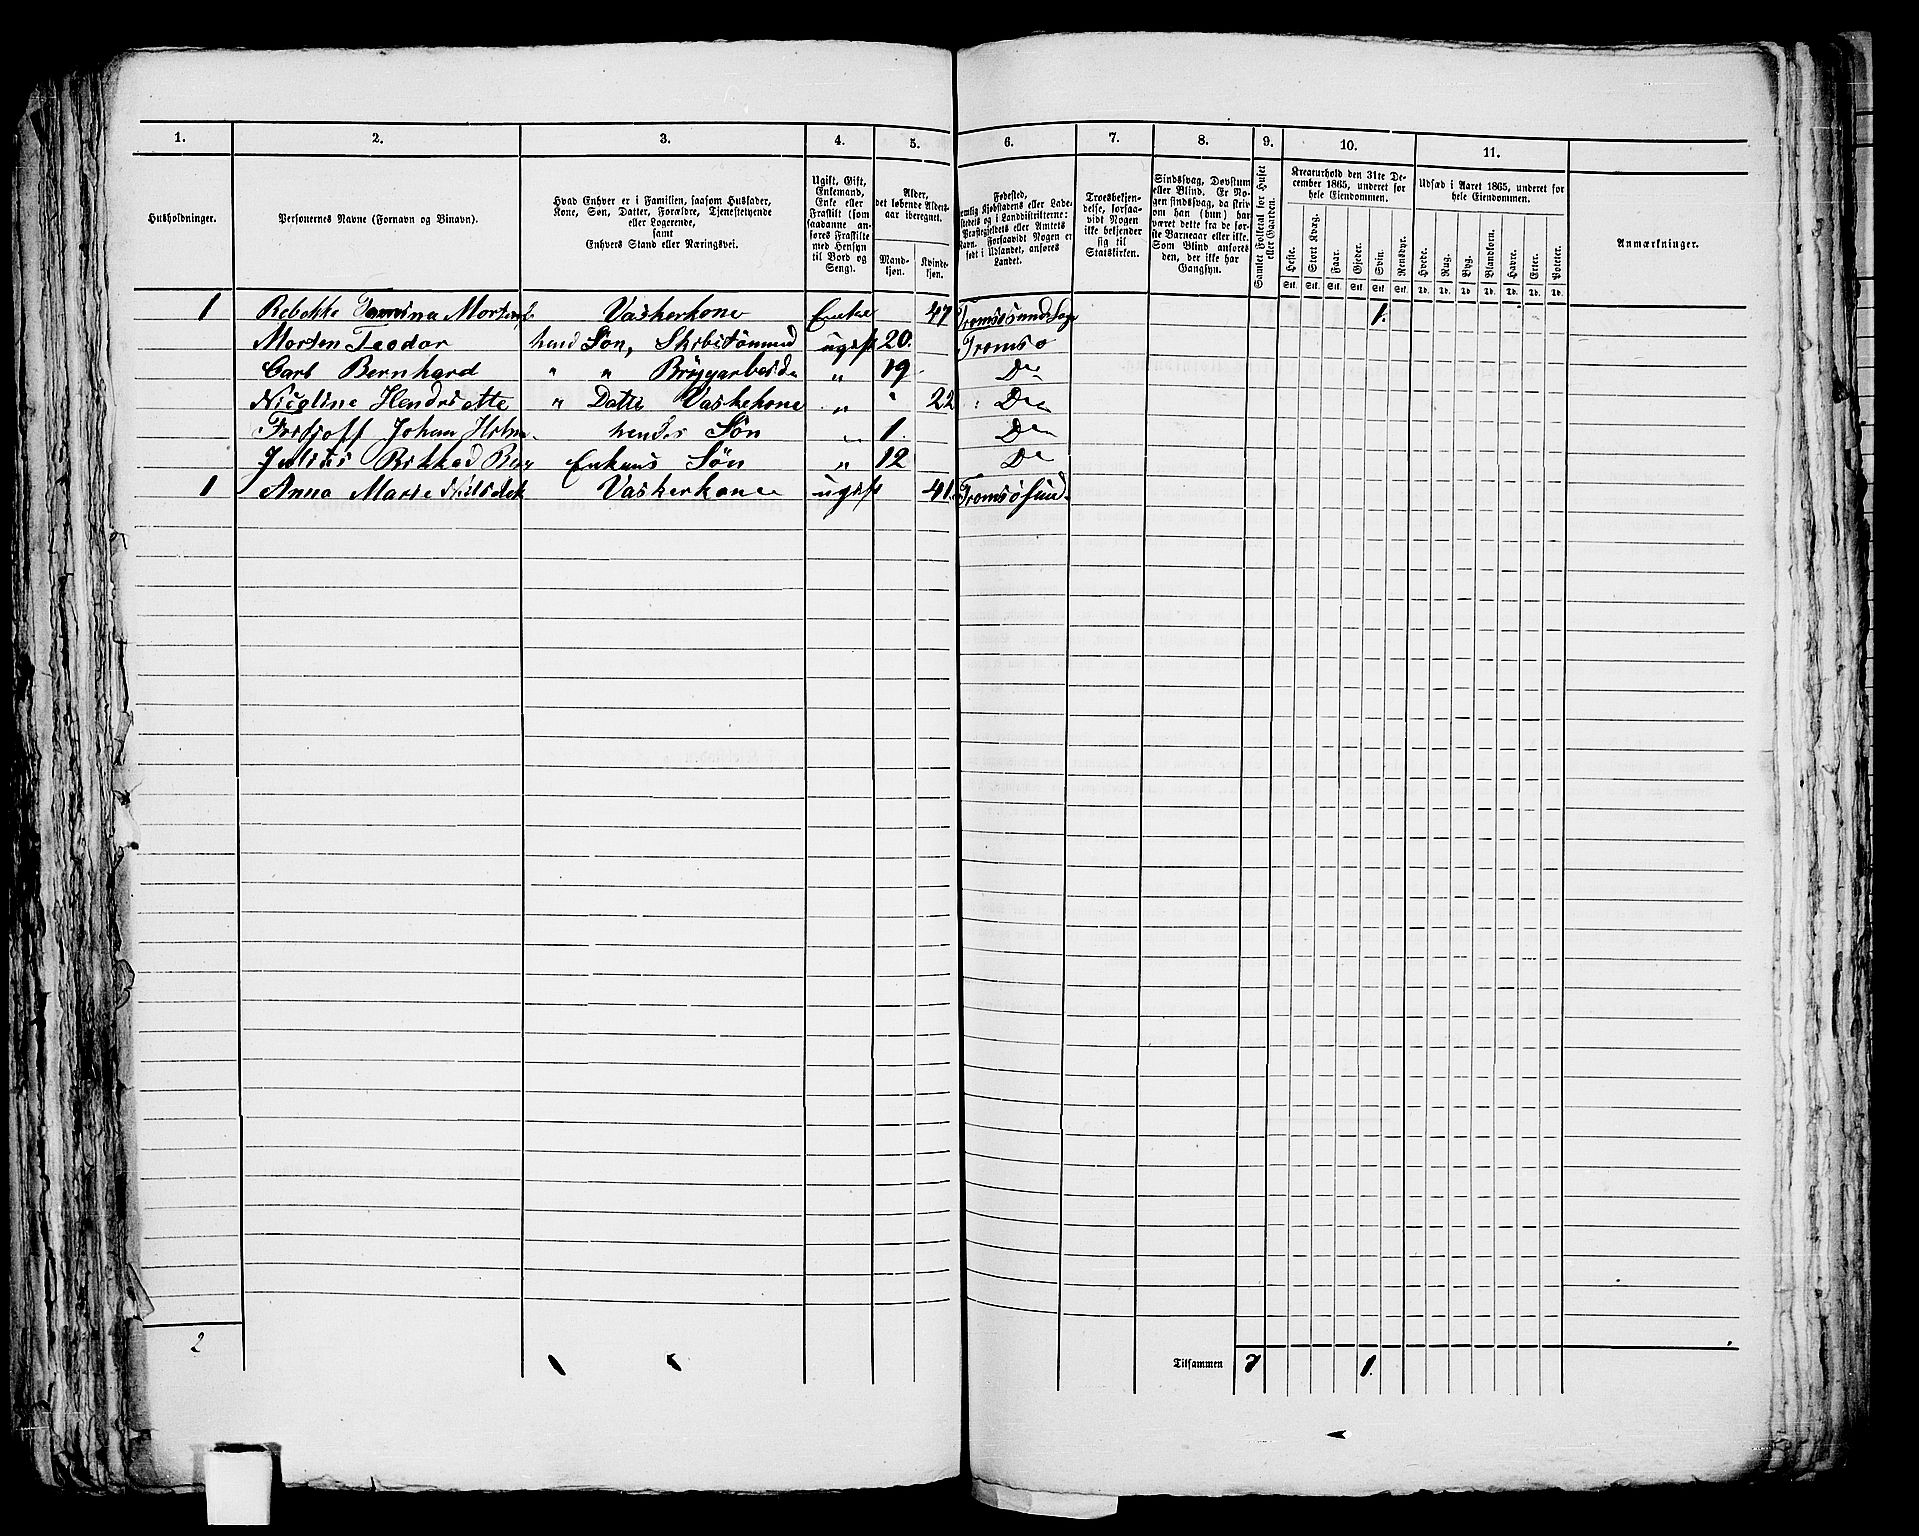 1. 2. 3. 4. 5. 6. 7. 8. 9. 10. 11.
Husholdninger.
Personernes Navne (Fornavn og Binavn).
Hvad Enhver er i Familien, saasom Husfader,
Kone, Søn, Datter, Forældre, Tjenestetyende
eller Logerende,
samt
Enhvers Stand eller Næringsvei.
Ugift, Gift,
Enkemand,
Enke eller
Fraskilt (som
saadanne an-
føres Fraskilte
med Hensyn
til Bord og
Seng).
Alder,
det løbende Alders-
aar iberegnet.
Mand-
kjøn.
Kvinde-
kjøn.
Fødested,
nemlig Kjøbstadens eller Lade-
stedets og i Landdistrikterne:
Præstegjeldets eller Amtets
Navn. Forsaavidt Nogen er
født i Udlandet, anføres
Landet.
Troesbekjen-
delse, forsaa-
vidt Nogen
ikke bekjender
sig til
Statskirken.
Sindssvag, Døvstum
eller Blind. Er No-
gen sindssvag, da skriv
om han (hun) har
været dette fra de før-
ste Barneaar eller ikke.
Som Blind anføres
den, der ikke har
Gangsyn.
Samlet Folketal for Huset
eller Gaarden.
Kreaturhold den 31te De-
cember 1865, underet for
hele Eiendommen.
Heste. Stort Kvæg. Faar. Gjeder. Svin. Rensdyr.
Stk. Stk. Stk. Stk. Stk. Stk.
Udsæd i Aaret 1865, underet for
hele Eiendommen.
Hvede. Rug. Byg. Blandkorn. Havre. Erter. Poteter.
Td. Td. Td. Td. Td. Td. Td.
Anmærkninger.
1 Rebekke Vaskerkone Enke 47 1.
Morten Teodor Søn, ugift 20. Tromsø
Carl Bernhard " " „ 19 Do
Nicoline Hendriette " Datte Vaskekone „ " 22 Do
Johan hendes Søn „ 1. Do
Julius Enkens Søn „ 12 Do
1 Anna Marie Vaskerkone ugift 41 Tromsøsund
2 Tilsammen 7 1.